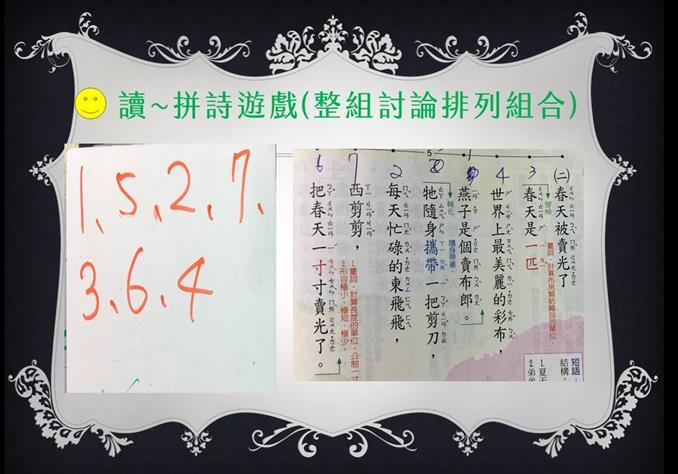 讀~拼詩遊戲(整組討論排列組合)
1、5、2、7、
3、6、4
(二) 春天被賣光了
3 春天是一匹
量詞。計算布帛類紡織品的單位。
4 世界上最美麗的彩布，
1 燕子是個賣布郎。
轉化
隨身帶著。
5 牠隨身攜帶一把剪刀，
2 每天忙碌的東飛飛，
7 西剪剪，
1.量詞。計算長度的單位。公制一寸
2.形容極小、極短、極少。
6 把春天一寸寸賣光了。
短語
結構，
1.夏天
2.弟弟